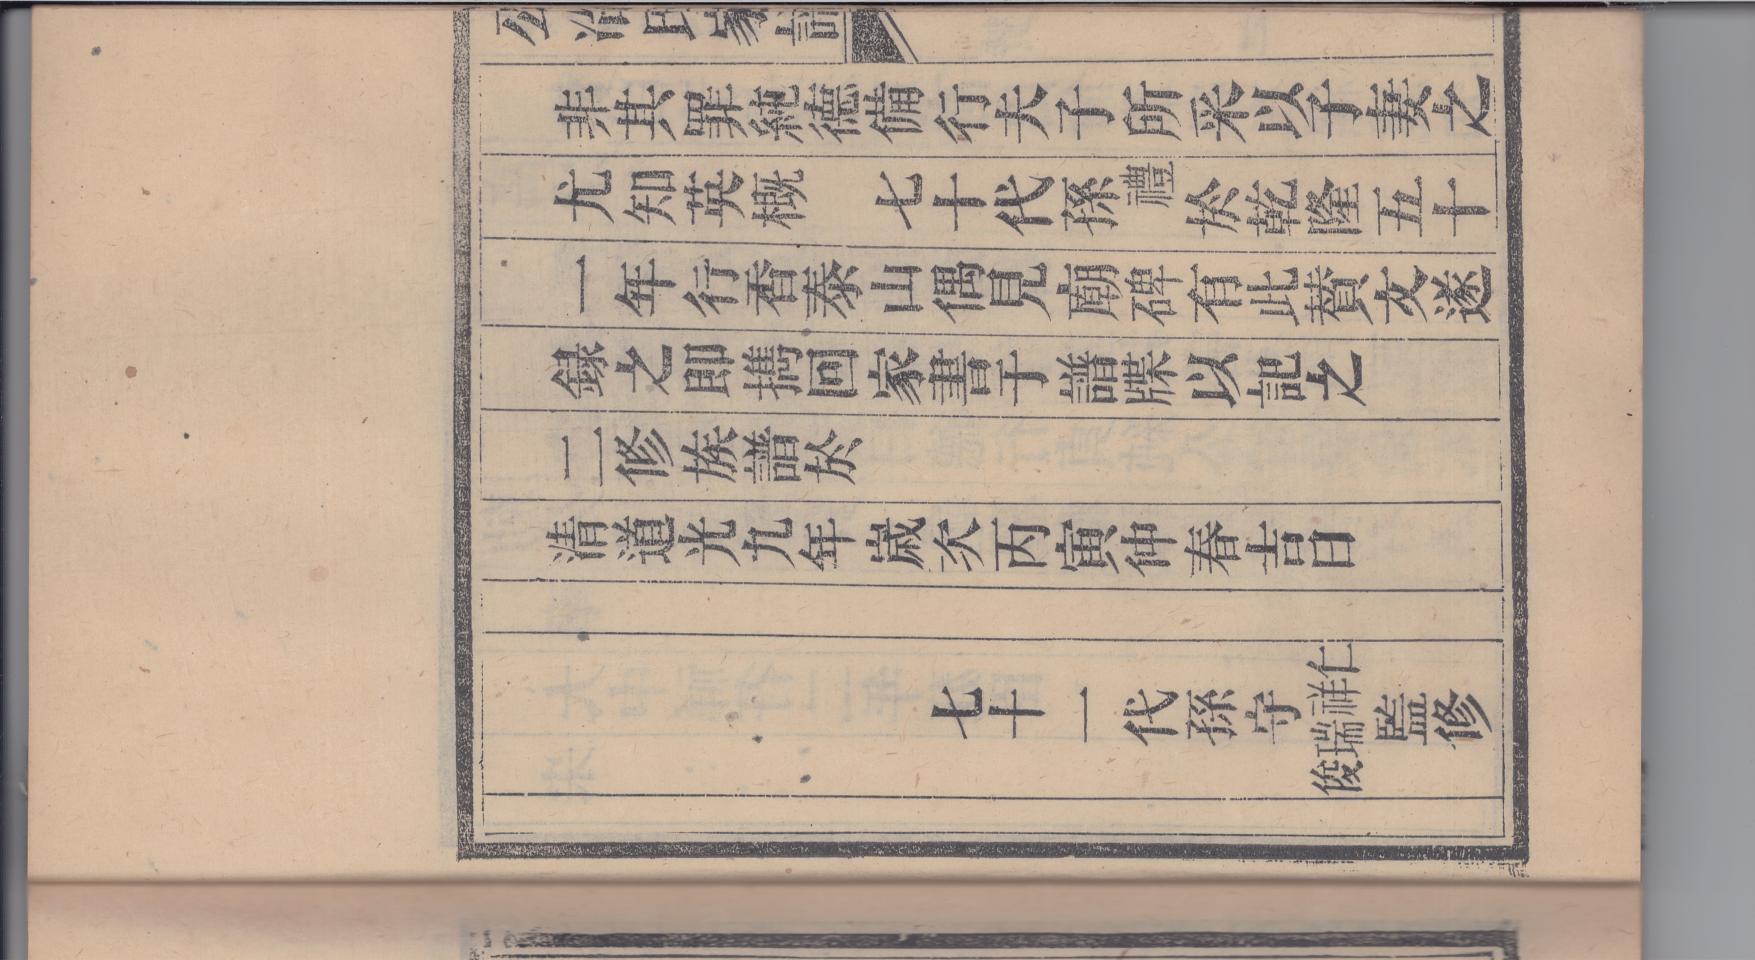 公冶氏家譜
非其罪純德備行夫子所采以子妻之
尤知英概 七十代孫禮於乾隆五十
一年行香泰山偶見廟碑有此贊文遂
錄之即攜回家書于譜牒以記之
二修族譜於
清道光九年歲次丙寅仲春吉日
七十一代孫守仁祥瑞俊監修